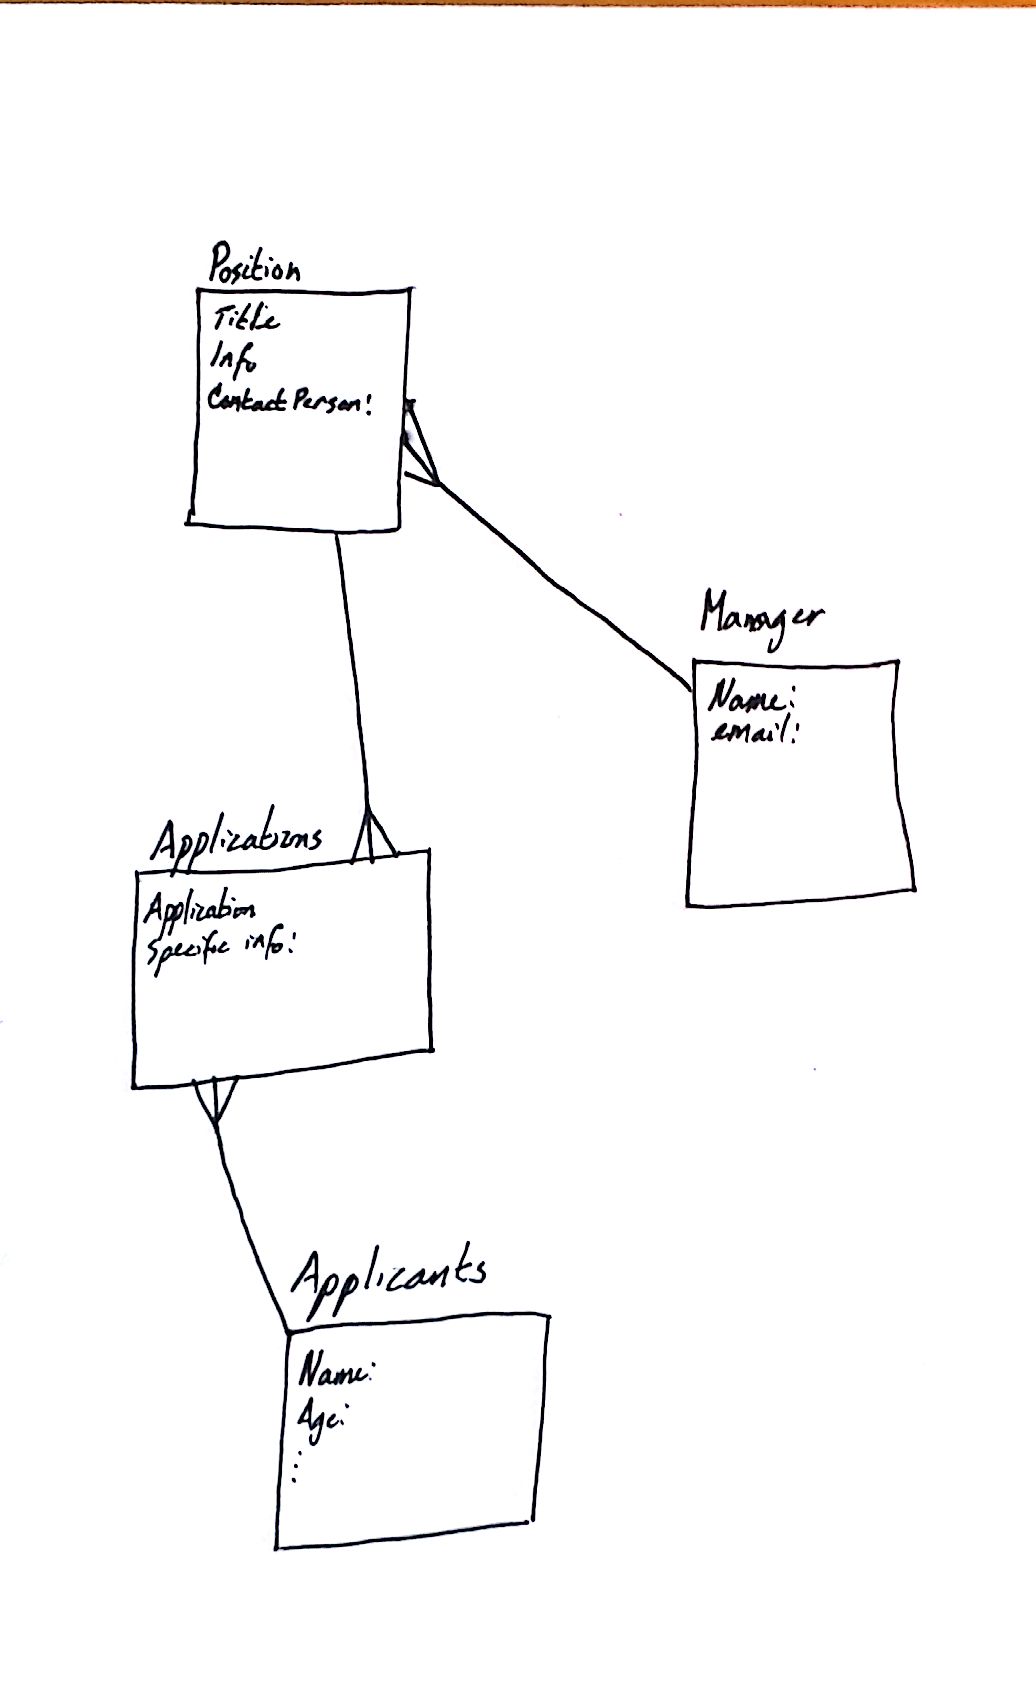 Position
Title
Info
Contact Person:
Manager
Name:
email:
Applications
Application
Specific info:
Applicants
Name:
Age: